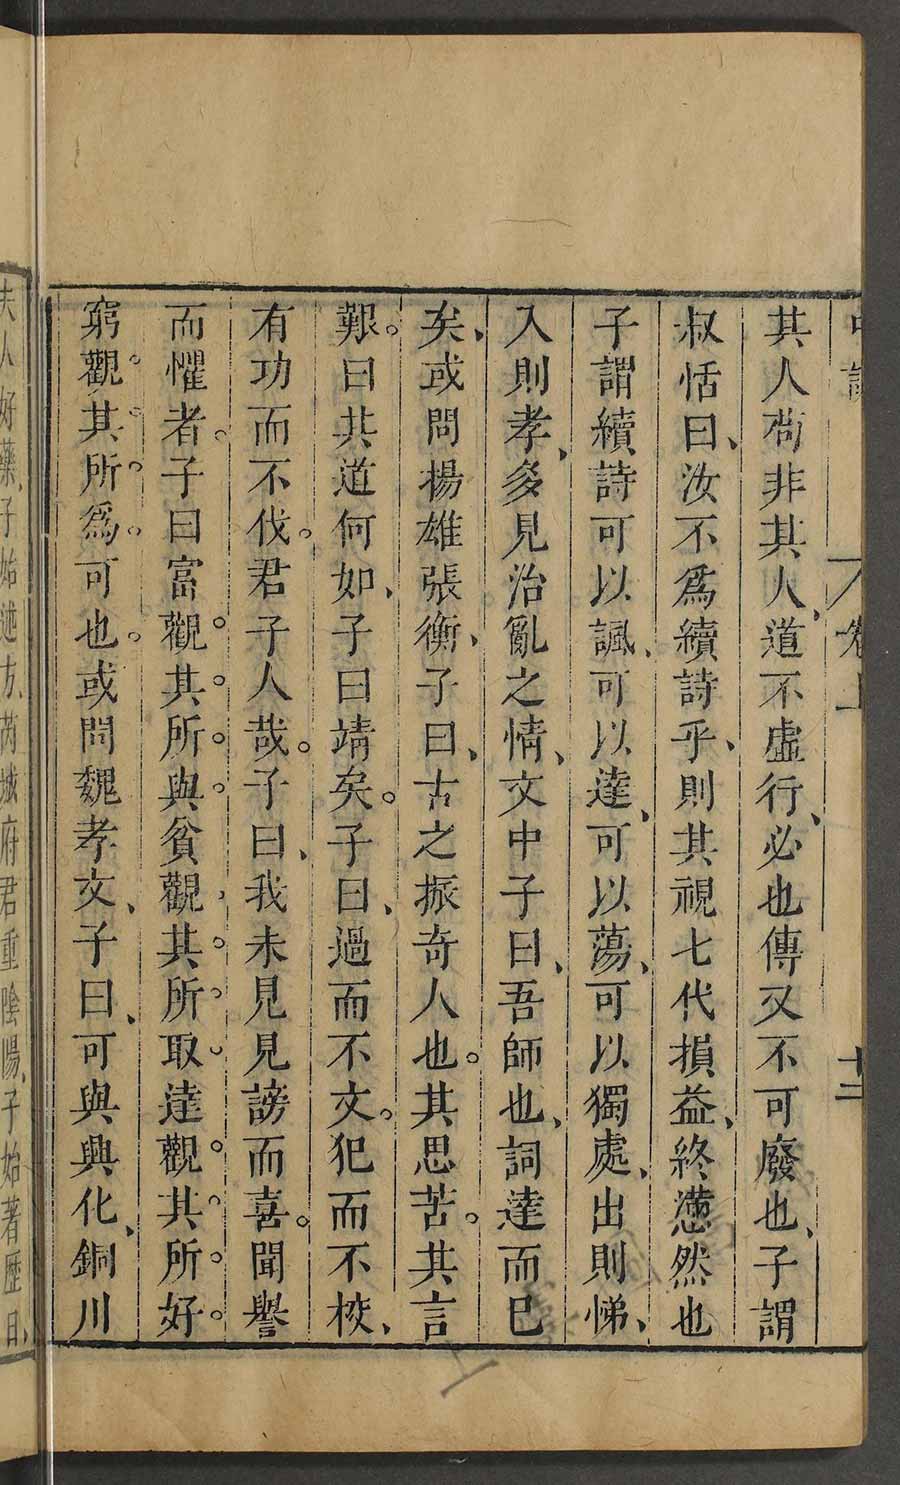 中說 卷上 十三
其人苟非其人道不虛行必也傳又不可廢也子謂
叔恬曰汝不爲續詩乎則其視七代損益終懣然也
子謂續詩可以諷可以達可以蕩可以獨處出則悌
入則孝多見治亂之情文中子曰吾師也詞達而已
矣或問揚雄張衡子曰古之振奇人也其思苦其言
艱曰其道何如子曰靖矣子曰過而不文犯而不校
有功而不伐君子人哉子曰我未見見謗而喜聞譽
而懼者子曰富觀其所與貧觀其所取達觀其所好
窮觀其所爲可也或問魏孝文子曰可與興化銅川
夫人好藥子始述方芮城府君重陰陽子始著歷日